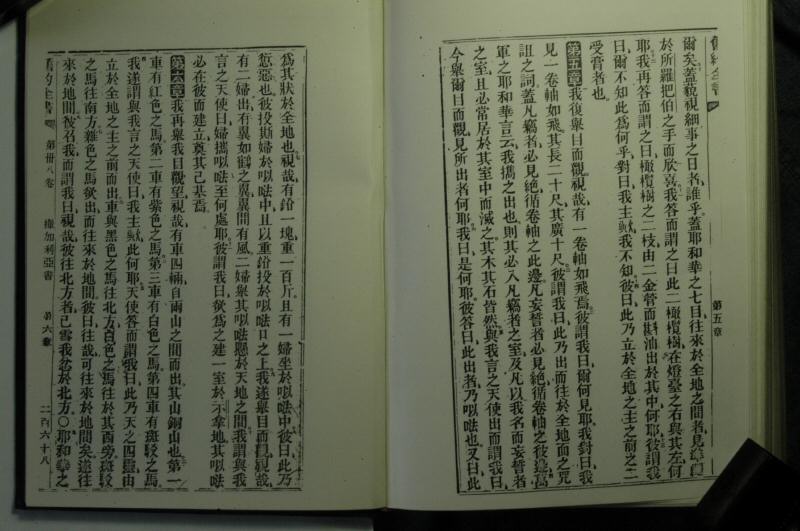 爾矣蓋藐視細事之日者誰乎蓋耶和華之七目往來於全地之間者見
於所羅把伯之手而欣喜我答而謂之曰此二橄欖樹在燈臺之右與其左何
耶我再答而謂之曰橄欖樹之二枝由二金管而斟油出於其中何耶彼謂我
曰爾不知此爲何乎對曰我主歟我不知彼曰此乃立於全地之主之前之二
受膏者也
第五章我復舉目而觀視哉有一卷軸如飛焉彼謂我曰爾何見耶我對曰我
見一卷軸如飛其長二十尺其廣十尺彼謂我曰此乃出而往於全地面之咒
詛之詞蓋凡竊者必見絕循卷軸之此邊凡妄誓者必見絕循卷軸之彼邊萬
軍之耶和華言云我攜之出也則其必入凡竊者之室及凡以我名而妄誓者
之室且必常居於其室中而滅之其木其石皆然與我言之天使出而謂我曰
今舉爾目而觀見所出者何耶我曰是何耶彼答曰此出者乃㕥㗑也又曰此
第五章
爲其狀於全地也視哉有鉛一塊重一百斤且有一婦坐於㗑中彼曰此乃
愆惡也彼投斯婦於㗑中且以重鉛投於㗑口之上我遂舉目而觀視哉
有二婦出有翼如鶴之翼翼間有風二婦舉其㗑懸於天地之間我謂與我
言之天使曰婦攜㗑至何處耶彼謂我曰欲爲之建一室於示拿地其㗑
必在彼而建立奠其己基焉
第六章我再舉我目觀望視哉有車四輛自兩山之間而出其山銅山也第一
車有紅色之馬第二車有紫色之馬第三車有白色之馬第四車有斑駁之馬
我遂謂與我言之天使曰我主歟此何耶天使答而謂我曰此乃天之四靈由
立於全地之主之前而出車與黑色之馬往於北方白色之馬往於其西旁斑駁
之馬往南方雜色之馬欲出而往來於地間彼曰往哉可往來於地間矣遂往
來於地間彼召我而謂我曰視哉彼往北方者已雪我忿於北方〇耶和華之
第卅八卷
撒加利亞書
第六章
二百六十八